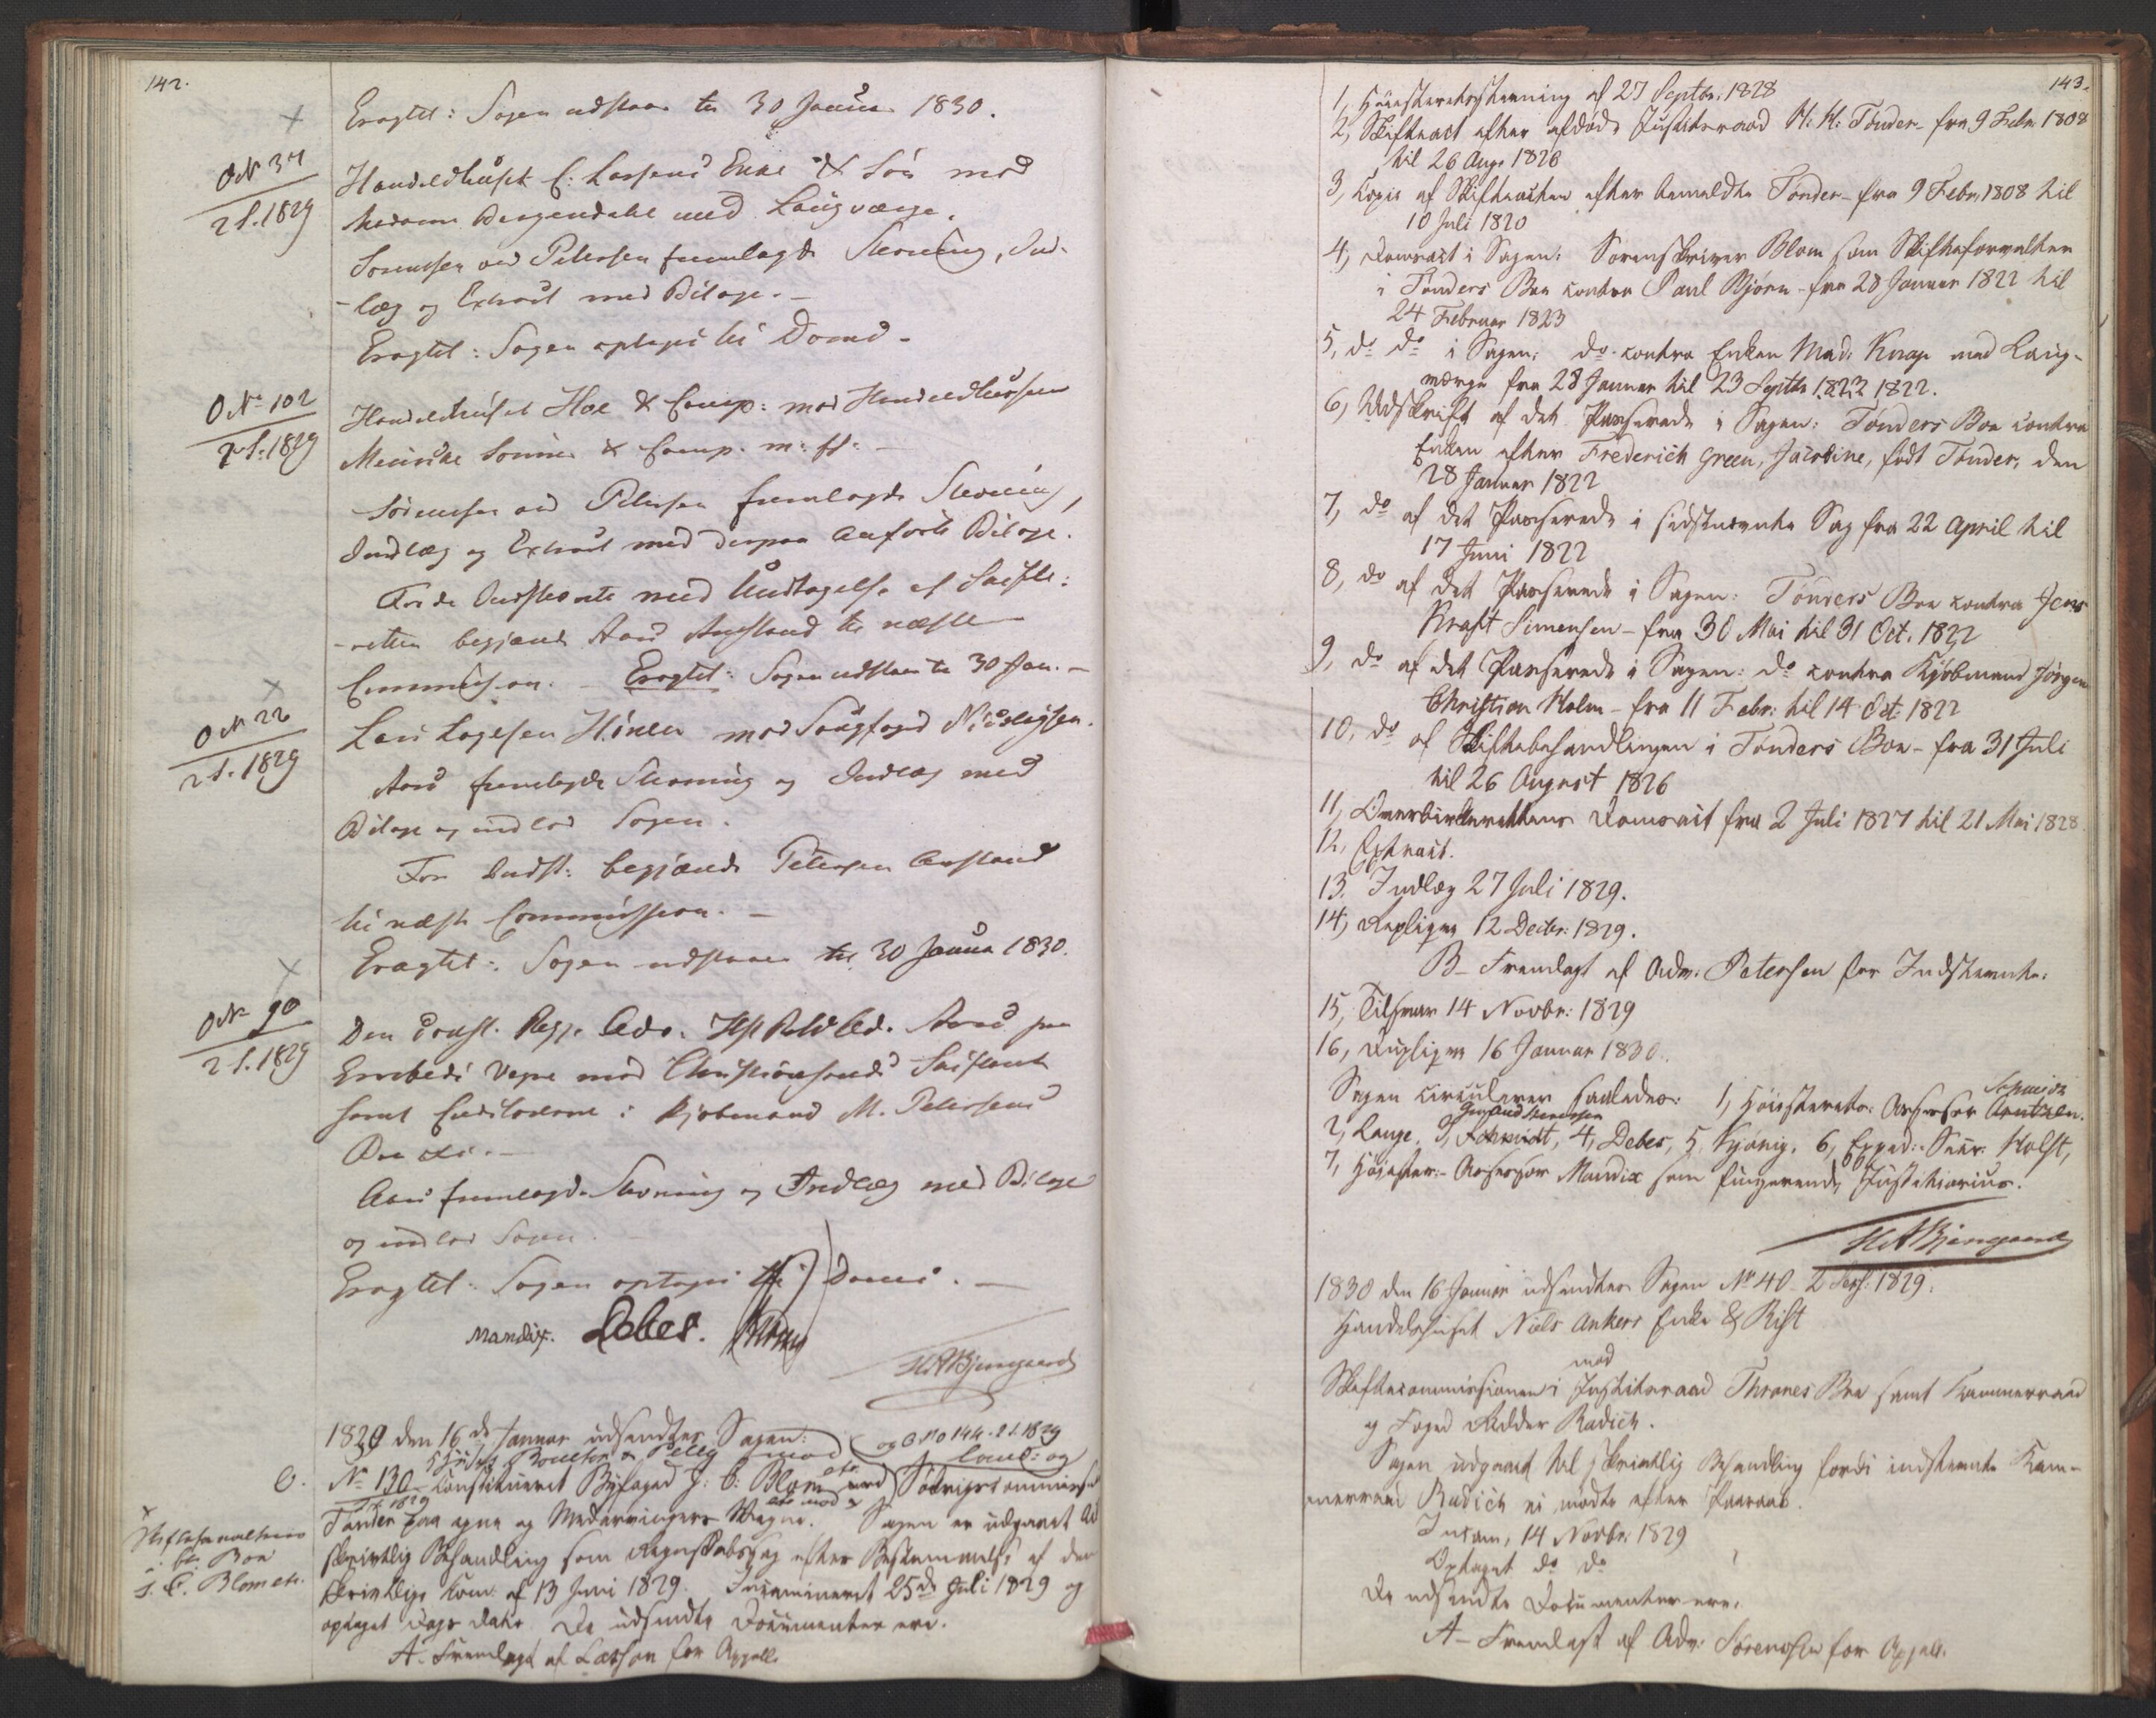 142.
Eragtet: Sagen udstaaer til 30 Januar 1830.
O No 37
2 S. 1829
Handelshuset C. Lassens Enke & Søn mod
Madame Bergendahl med Laugværge.
Sørenssen ved Petersen fremlagde Stevning, Ind-
læg og Extract med Bilage.
Eragtet: Sagen optages til Doms.
O No 102
2 S. 1829
Handelshuset Hoe & Comp: mod Handelshuset
Sønner & Comp. m: fl:
Sørenssen ved Petersen fremlagde Stevning,
Indlæg og Extract med derpaa anførte Bilage.
For de Indstevnte med Undtagelse af Skifte-
retten begjærede Aars Anstand til næste
Commission. Eragtet: Sagen udstaaer til 30 Jan.
O No 22
2 S. 1829
Lars Larsen mod Nicolaysen.
Aars fremlagde Stevning og Indlæg med
Bilage og indlod Sagen.
For Indst: begjærede Petersen Anstand
til næste Commission.
Eragtet: Sagen udstaaer til 30 Januar 1830.
O No 90
2 S. 1829
Den Const. Regj. Adv. Aars paa
Embeds Vegne mod Christianssunds Skifteret
samt Creditorerne i Kjøbmand M. Petersens
Boe
Aars fremlagde Stevning og Indlæg med Bilage
og indlod Sagen.
Eragtet: Sagen optages til Doms.
Mandix. Debes.
H A Bjerregaard
1830 den 16de Januar udsendtes Sagen:
og O No 144. 2 S. 1829
O. No 130 Constitueret Byfoged J: C: Blom mod
Tønder paa egne og Medarvingers Vegne. Sagen er udgaaet til
skriftlig Behandling som Regnskabssag efter Bestemmelse af den
skriftlige Com: af 13 Juni 1829. Incamineret 25de Juli 1829 og
optaget Dags Dato. De udsendte Documenter ere.
A. Fremlagt af Lasson for Appell.
Skifteforvalteren
i Boe
J. C. Blom etc.
143.
1, Høiesteretsstevning af 27 Septbr: 1828
2, Skifteact efter afdøde Justitsraad H: H: Tønder fra 9 Febr 1808
til 26 Aug: 1826
3, Copie af Skifteacten efter bemeldte Tønder - fra 9 Febr. 1808 til
10 Juli 1820
4, Domsact i Sagen: Sorenskriver Blom som Skifteforvalter
i Tønders Boe contra Paul Bjørn - fra 28 Januar 1822 til
24 Februar 1823
5, do do i Sagen: do contra Enken Mad: Knap med Laug-
værge fra 28 Januar til 23 Septbr 1822 1822.
6, Udskrift af det Passerede i Sagen: Tønders Boe contra
Enken efter Frederich Green, Jacobine, født Tønder, den
28 Januar 1822
7, do af det Passerede i sidstnævnte Sag fra 22 April til
17 Juni 1822
8, do af det Passerede i Sagen: Tønders Boe contra Jens
Kraft Simensen - fra 30 Mai til 31 Oct. 1822
9, do af det Passerede i Sagen: do contra Kjøbmand Jørgen
Christian Holm - fra 11 Febr: til 14 Oct: 1822
10, do af Skiftebehandlingen i Tønders Boe - fra 31 Juli
til 26 August 1826
11, Overbirkerettens Domsact fra 2 Juli 1827 til 21 Mai 1828.
12, Extract.
13, Indlæg 27 Juli 1829.
14, Repliqen 12 Decbr: 1829.
B - Fremlagt af Adv: Petersen for Indstevnte:
15, Tilsvar 14 Novbr: 1829
16, Dupliqen 16 Januar 1830.
Sagen circulerer saaledes: 1, Høiesterets: Assessor Arntzen. Schmidt
2, Lange. 3, Schmidt, 4, Debes, 5, Kjønig. 6, Exped:-Secr: Holst,
7, Høiester:-Assessor Mandix som fungerende Justitiarius.
H A Bjerregaard
1830 den 16 Januar udsendtes Sagen No 40 - 2 Sess: 1829.
Handelshuset Niels Ankers Enke & Rist
mod
Skiftecommissionen i Justitsraad Thranes Boe samt Kammerraad
og Foged Ridder Radich.
Sagen udgaaet til skriftlig Behandling fordi indstevnte Kam-
merraad Radich ei mødte efter Paaraab.
Incam, 14 Novbr: 1829
Optaget do do
De udsendte Documenter ere:
A - Fremlagt af Adv: Sørenssen for Appell.